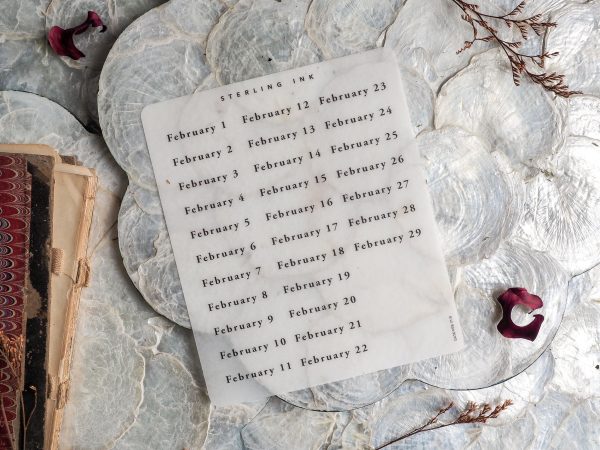 STERLING INK
February 1 February 12 February 23
February 2 February 13 February 24
February 3 February 14 February 25
February 4 February 15 February 26
February 5 February 16 February 27
February 6 February 17 February 28
February 7 February 18 February 29
February 8 February 19
February 9 February 20
February 10 February 21
February 11 February 22